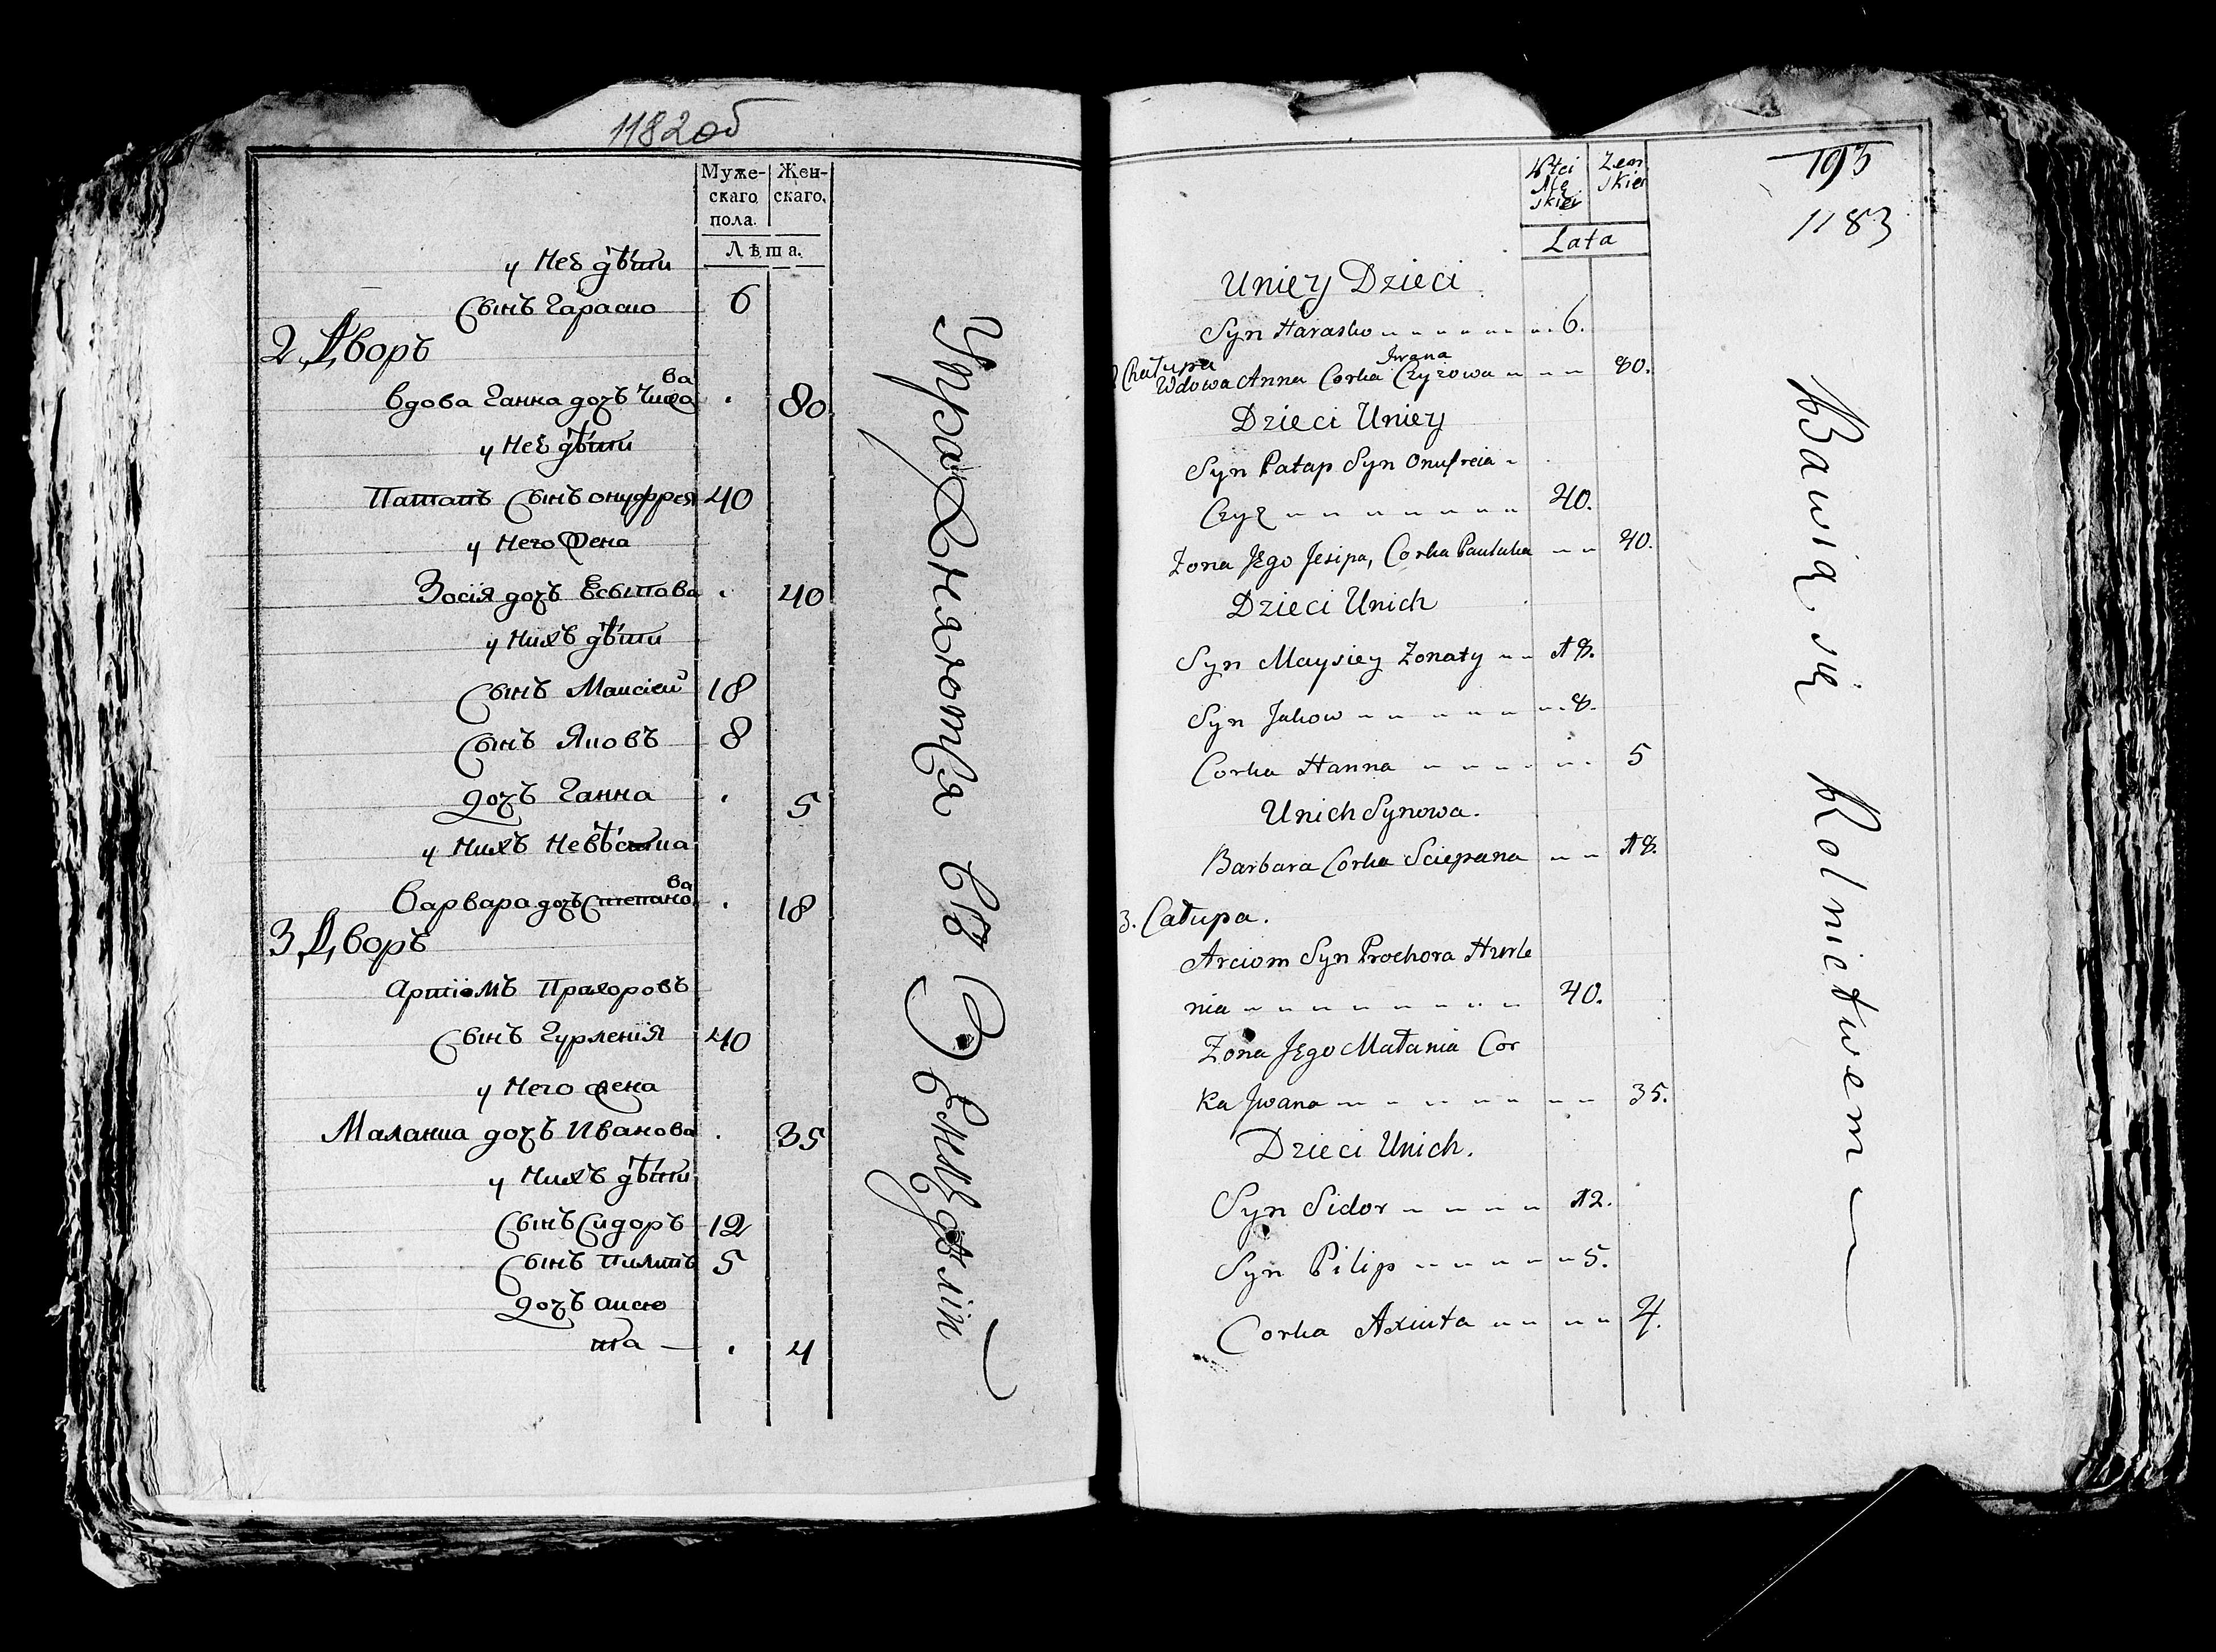 1182об
Муже-
скаго
пола.
Жен-
скаго.
Лѣта.
у неѣ дѣти
Сынъ Гараско 6
2 Дворъ
вдова Ганна дочъ Чижова 80
у неѣ дѣти
Патапъ Сынъ онуфрея 40
у него жена
Зосія дочъ Есыпова 40
у нихъ дѣти
Сынъ Маисіей 18
Сынъ Яковъ 8
дочъ Ганна 5
у нихъ невѣстка
Варвара дочъ Степанова 18
3 Дворъ
Артіомъ Прахоровъ
Сынъ Гурленія 40
у него жена
Маланиа дочъ Иванова 35
у нихъ дѣти
Сынъ Сидоръ 12
Сынъ Пилипъ 5
дочъ аксю
та — 4
Упражняются въ Земледѣліи
193
1183
Płci
Mę
skiei
Zen
skiei
Lata
Uniey Dzieci
Syn Harasko 6.
2 Chałupa
Wdowa Anna Corka Iwana Czyzowa 80.
Dzieci Uniey
Syn Patap Syn Onufreia
Czyz 40.
Zona Jego Jesipa, Corka Pauluka 40.
Dzieci Unich
Syn Maysiey Zonaty 18.
Syn Jakow 8.
Corka Hanna 5
Unich Synowa.
Barbara Corka Sciepana 18.
3. Całupa.
Arciom Syn Prochora Hurle
nia 40.
Zona Jego Małania Cor
ka Jwana 35.
Dzieci Unich.
Syn Sidor 12.
Syn Pilip 5.
Corka Axiuta 4.
Bawią się Rolnictwem